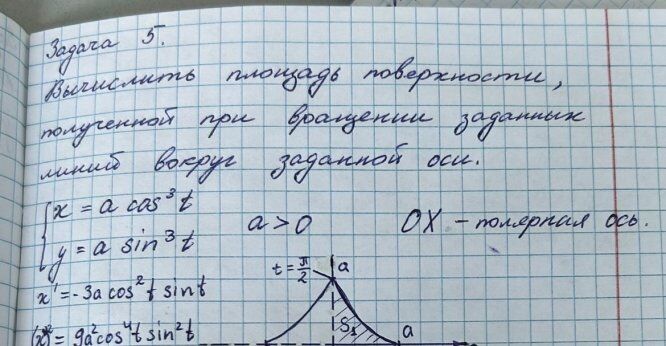 Задача 5.
Вычислить площадь поверхности,
полученной при вращении заданных
линий вокруг заданной оси.
{ x = a cos³ t
y = a sin³ t
a > 0
OX – полярная ось.
x' = -3a cos² t sin t
t = π/2
a
S₁
a
(x')² = 9a² cos⁴ t sin² t